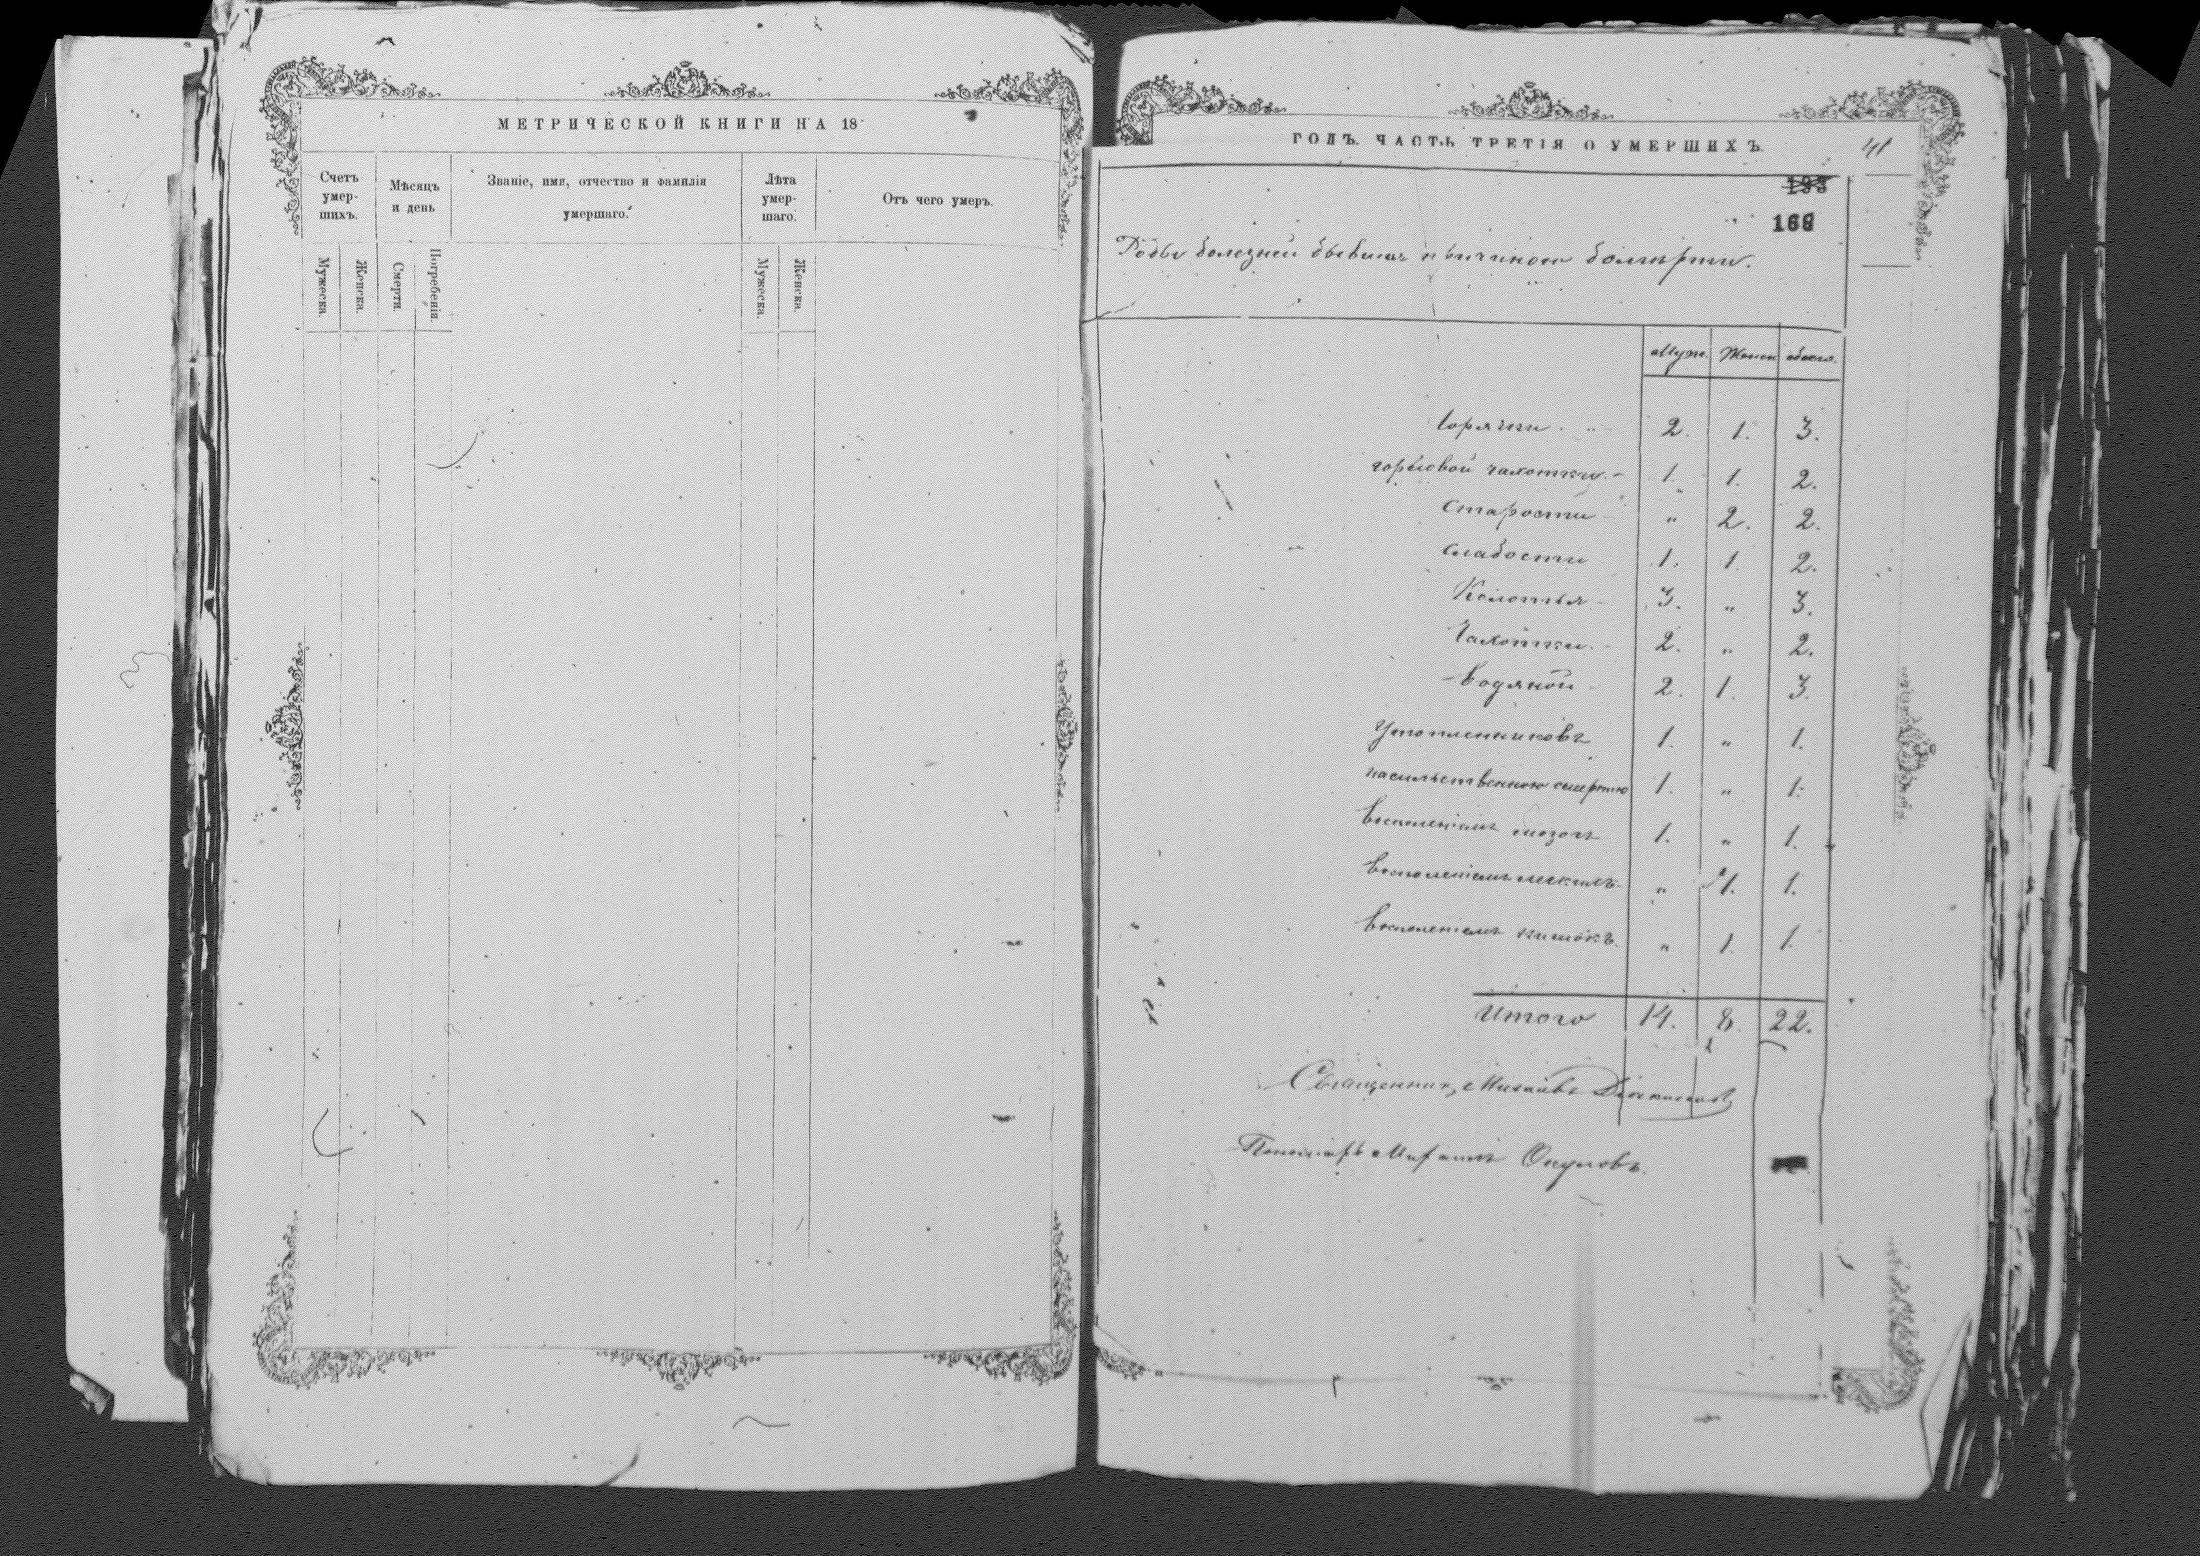 МЕТРИЧЕСКОЙ КНИГИ НА 18
Счетъ умер- шихъ.
Мѣсяцъ и день
Званіе, имя, отчество и фамилія умершаго.
Лѣта умер- шаго.
Отъ чего умеръ.
Мужеска.
Женска.
Смерти.
Погребенія.
Мужеска.
Женска.
ГОДЪ. ЧАСТЬ ТРЕТІЯ О УМЕРШИХЪ
41
193
168
Роды болезней бывших причиною
Муж. Женск обоего.
Горячки 2. 1. 3.
горловой чахотки 1. 1. 2.
старости " 2. 2.
слабости 1. 1. 2.
Колотья 3. " 3.
Чахотки 2. " 2.
водяной 2. 1. 3.
Утопленниковъ 1. " 1.
насильственною смертію 1. " 1.
воспаленіемъ мозга 1. " 1.
воспаленіемъ легкихъ " 1. 1.
воспаленіемъ кишокъ " 1. 1.
Итого 14. 8. 22.
Священник Михаилъ
Пономарь Окуловъ.